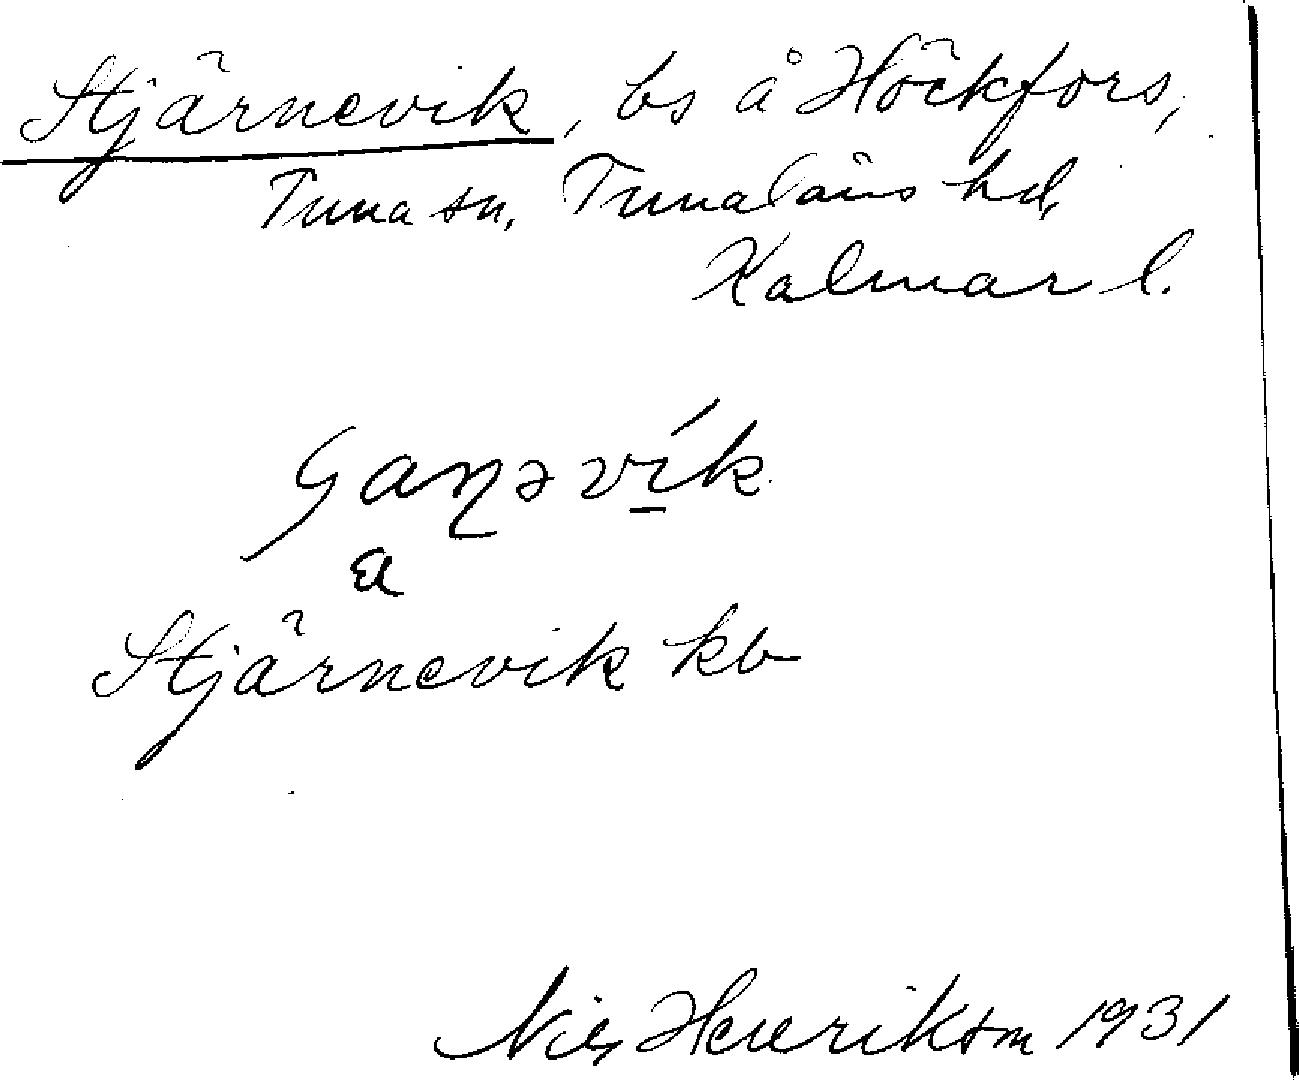 Stjärnevik, bs å Höckfors,
Tuna sn, Tunaläns hd,
Kalmar l.
Stjärnevik kb
Nils Henrikson 1931